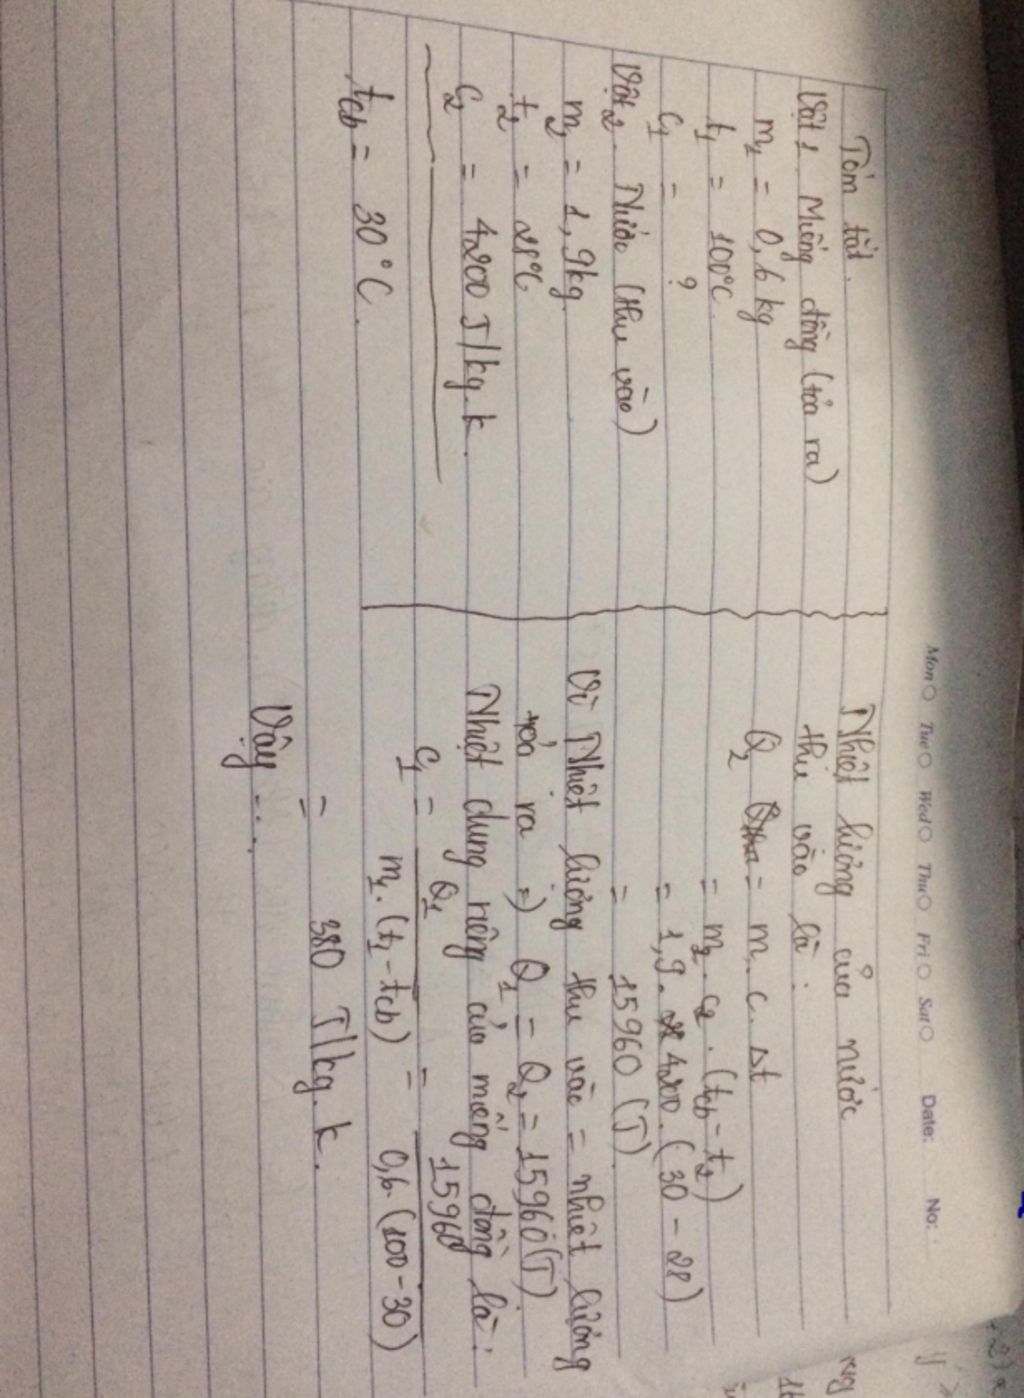 Mon Tue Wed Thu Fri Sat Date: No:
Tóm tắt.
Vật 1 Miếng đồng (tỏa ra)
m₁ = 0,6 kg
t₁ = 100°C
C₁ = ?
Vật 2. Nước (thu vào)
m₂ = 1,9kg.
t₂ = 28°C
C₂ = 4200 J/kg.k.
tcb = 30°C.
Nhiệt lượng của nước
thu vào là:
Q₂ = m.c.Δt
= m₂.c₂.(tcb-t₂)
= 1,9.4200.(30-28)
= 15960 (J)
Vì Nhiệt lượng thu vào = nhiệt lượng
toả ra => Q₁ = Q₂ = 15960(J).
Nhiệt dung riêng của miếng đồng là:
C₁ = Q₁ / m₁.(t₁-tcb) = 15960 / 0,6.(100-30)
= 380 J/kg.k.
Vậy ....